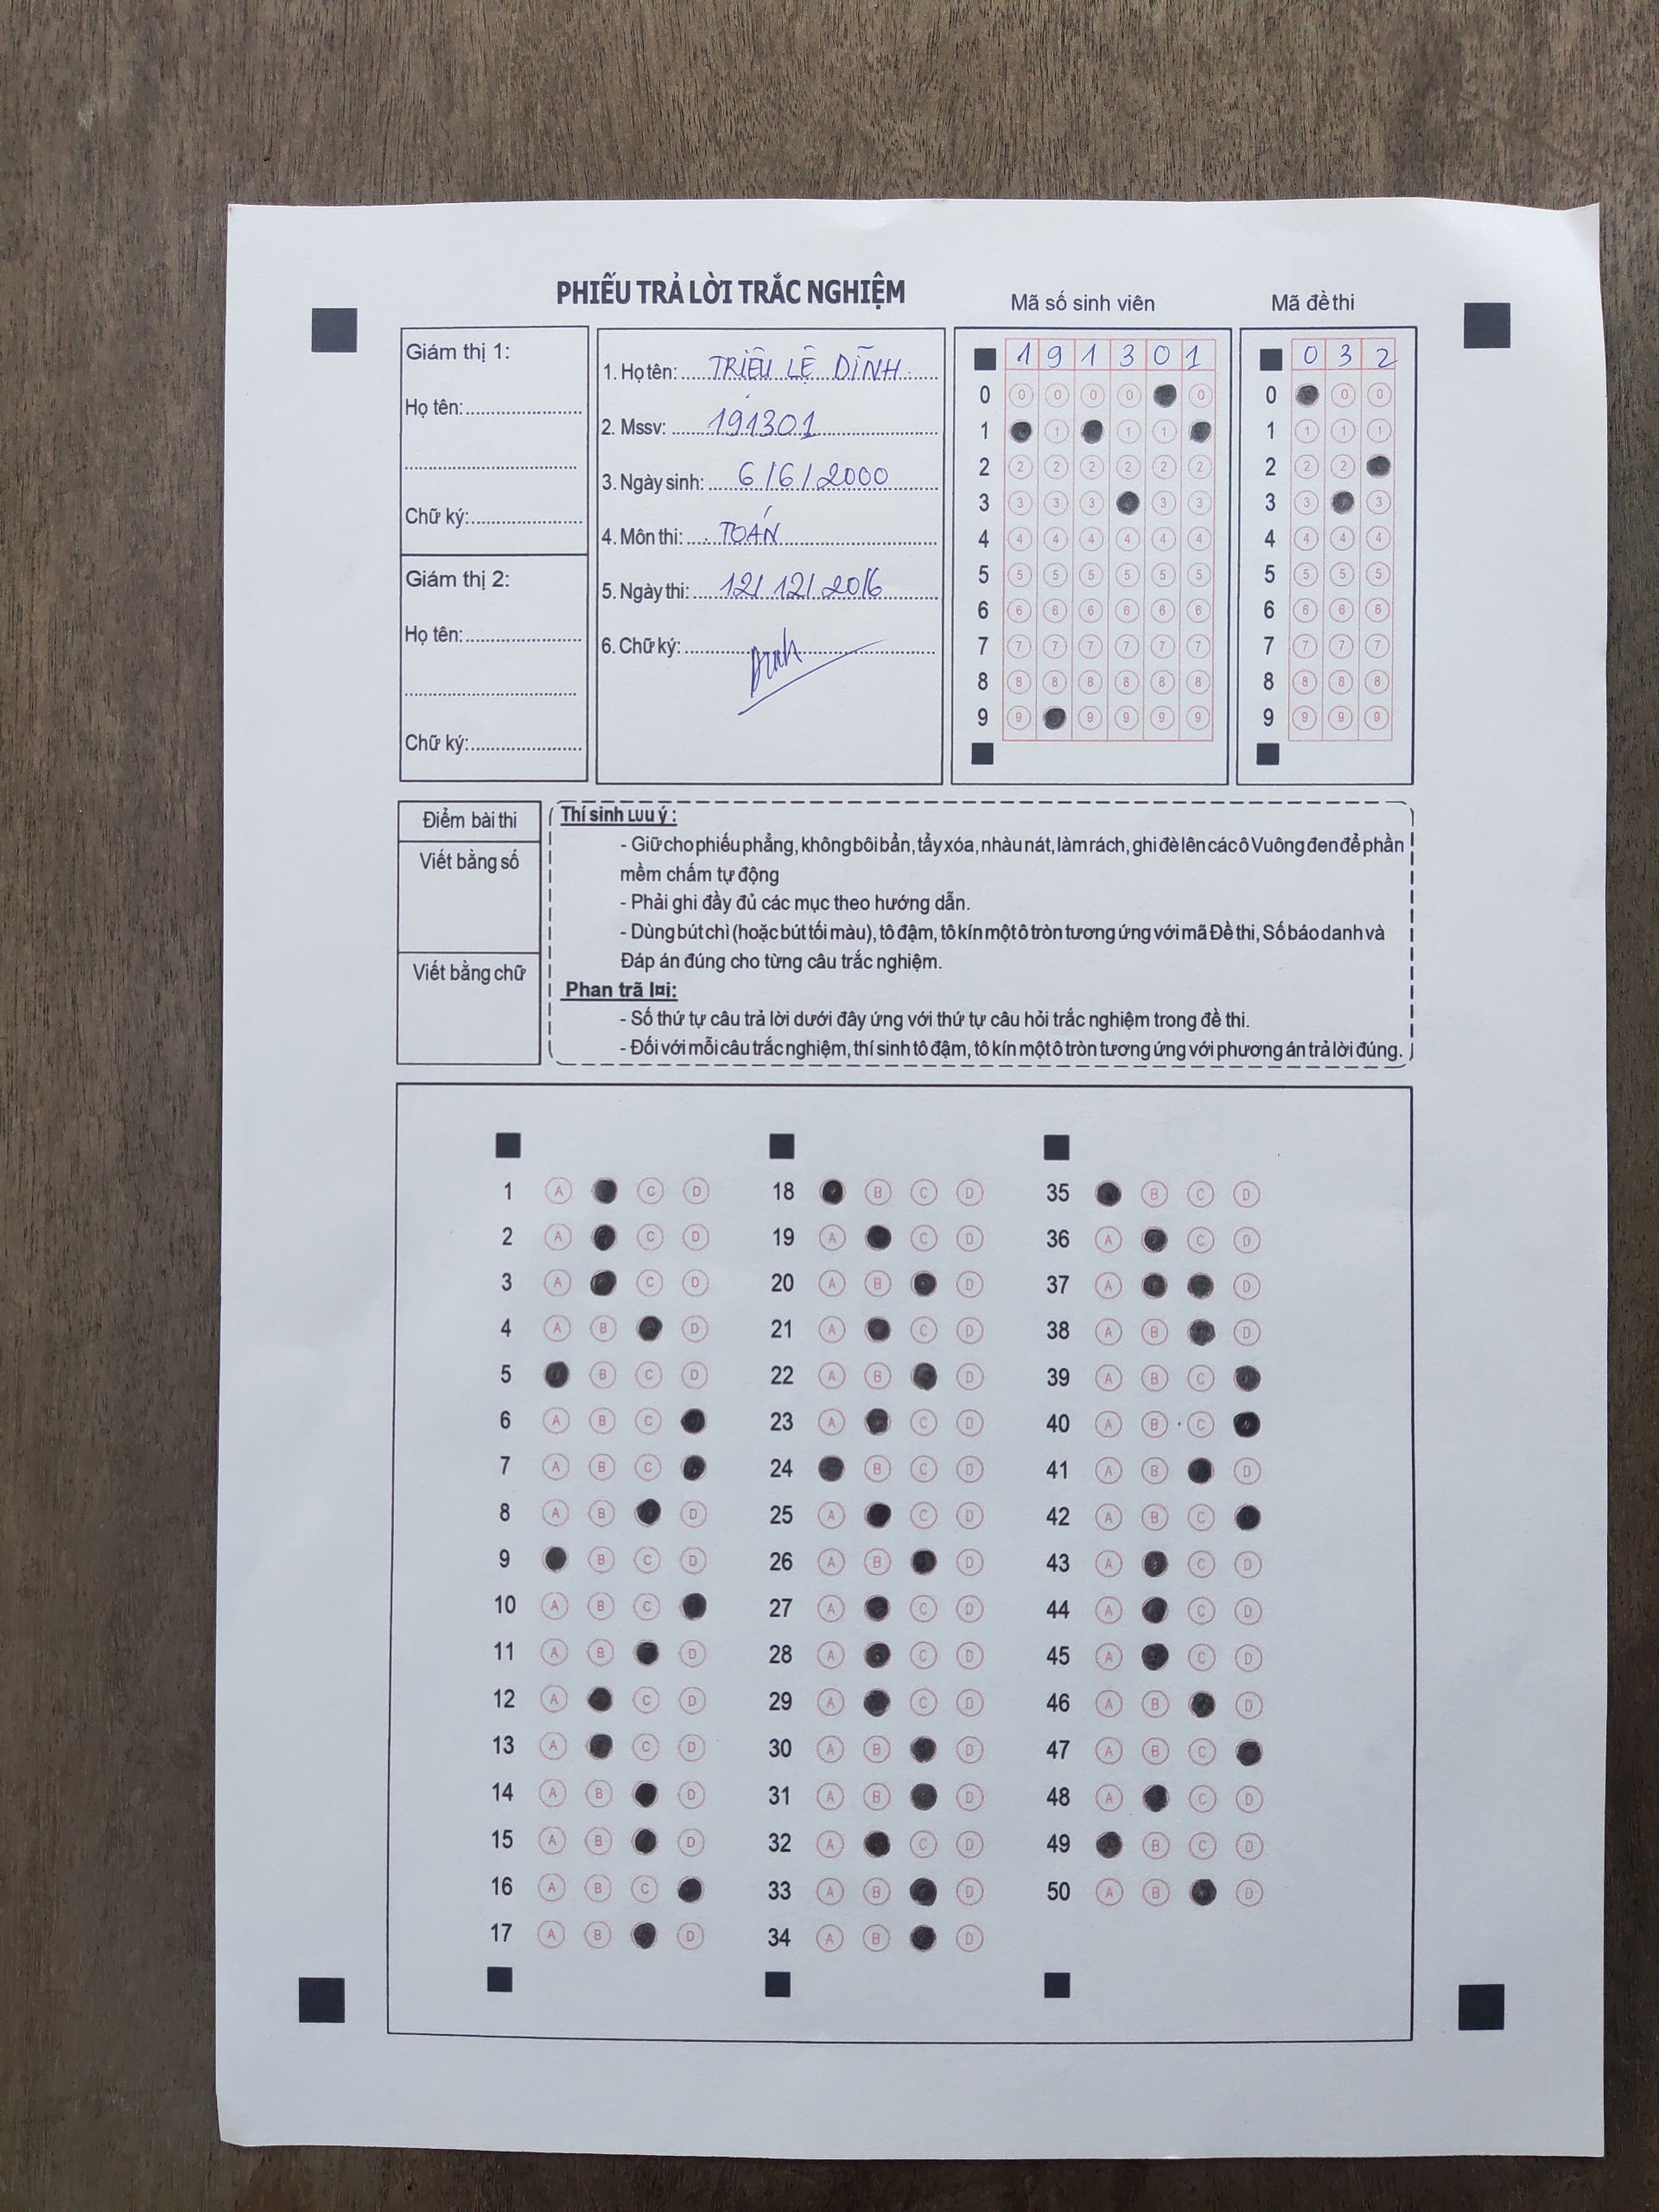 PHIẾU TRẢ LỜI TRẮC NGHIỆM
Mã số sinh viên
Mã đề thi
Giám thị 1:
Họ tên:
Chữ ký:
Giám thị 2:
Họ tên:
Chữ ký:
1. Họ tên: TRIỆU LỆ DĨNH
2. Mssv: 191301
3. Ngày sinh: 6/6/2000
4. Môn thi: TOÁN
5. Ngày thi: 12/12/2016
6. Chữ ký:
1 9 1 3 0 1
0 0 0 0 0 0
1 1 1 1
2 2 2 2 2 2 2
3 3 3 3 3 3
4 4 4 4 4 4 4
5 5 5 5 5 5 5
6 6 6 6 6 6 6
7 7 7 7 7 7 7
8 8 8 8 8 8 8
9 9 9 9 9 9
0 3 2
0 0 0
1 1 1 1
2 2 2
3 3 3
4 4 4 4
5 5 5 5
6 6 6 6
7 7 7 7
8 8 8 8
9 9 9 9
Điểm bài thi
Viết bằng số
Viết bằng chữ
Thí sinh Lưu ý :
- Giữ cho phiếu phẳng, không bôi bẩn, tẩy xóa, nhàu nát, làm rách, ghi đè lên các ô Vuông đen để phần
mềm chấm tự động
- Phải ghi đầy đủ các mục theo hướng dẫn.
- Dùng bút chì (hoặc bút tối màu), tô đậm, tô kín một ô tròn tương ứng với mã Đề thi, Số báo danh và
Đáp án đúng cho từng câu trắc nghiệm.
Phan trã l¤i:
- Số thứ tự câu trả lời dưới đây ứng với thứ tự câu hỏi trắc nghiệm trong đề thi.
- Đối với mỗi câu trắc nghiệm, thí sinh tô đậm, tô kín một ô tròn tương ứng với phương án trả lời đúng.
1 A C D
2 A C D
3 A C D
4 A B D
5 B C D
6 A B C
7 A B C
8 A B D
9 B C D
10 A B C
11 A B D
12 A C D
13 A C D
14 A B D
15 A B D
16 A B C
17 A B D
18 B C D
19 A C D
20 A B D
21 A C D
22 A B D
23 A C D
24 B C D
25 A C D
26 A B D
27 A C D
28 A C D
29 A C D
30 A B D
31 A B D
32 A C D
33 A B D
34 A B D
35 B C D
36 A C D
37 A D
38 A B D
39 A B C
40 A B C
41 A B D
42 A B C
43 A C D
44 A C D
45 A C D
46 A B D
47 A B C
48 A C D
49 B C D
50 A B D